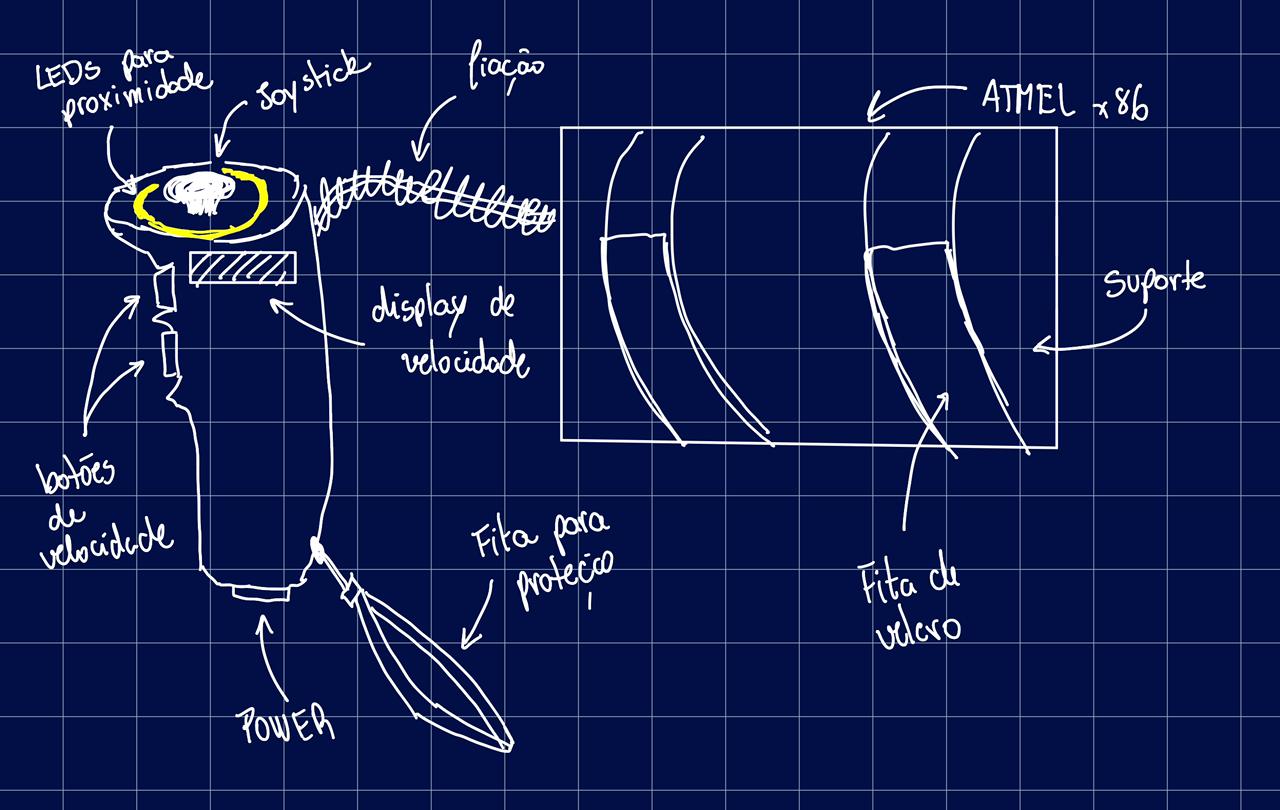 LEDs para
proximidade
Joystick
fiação
ATMEL x86
Suporte
display de
velocidade
botões
de
velocidade
Fita para
proteção
Fita de
velcro
POWER